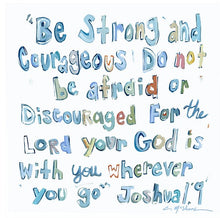 "Be Strong and
Courageous Do not
be afraid or
Discouraged For the
Lord your God is
With you wherever
you go" Joshua1:9